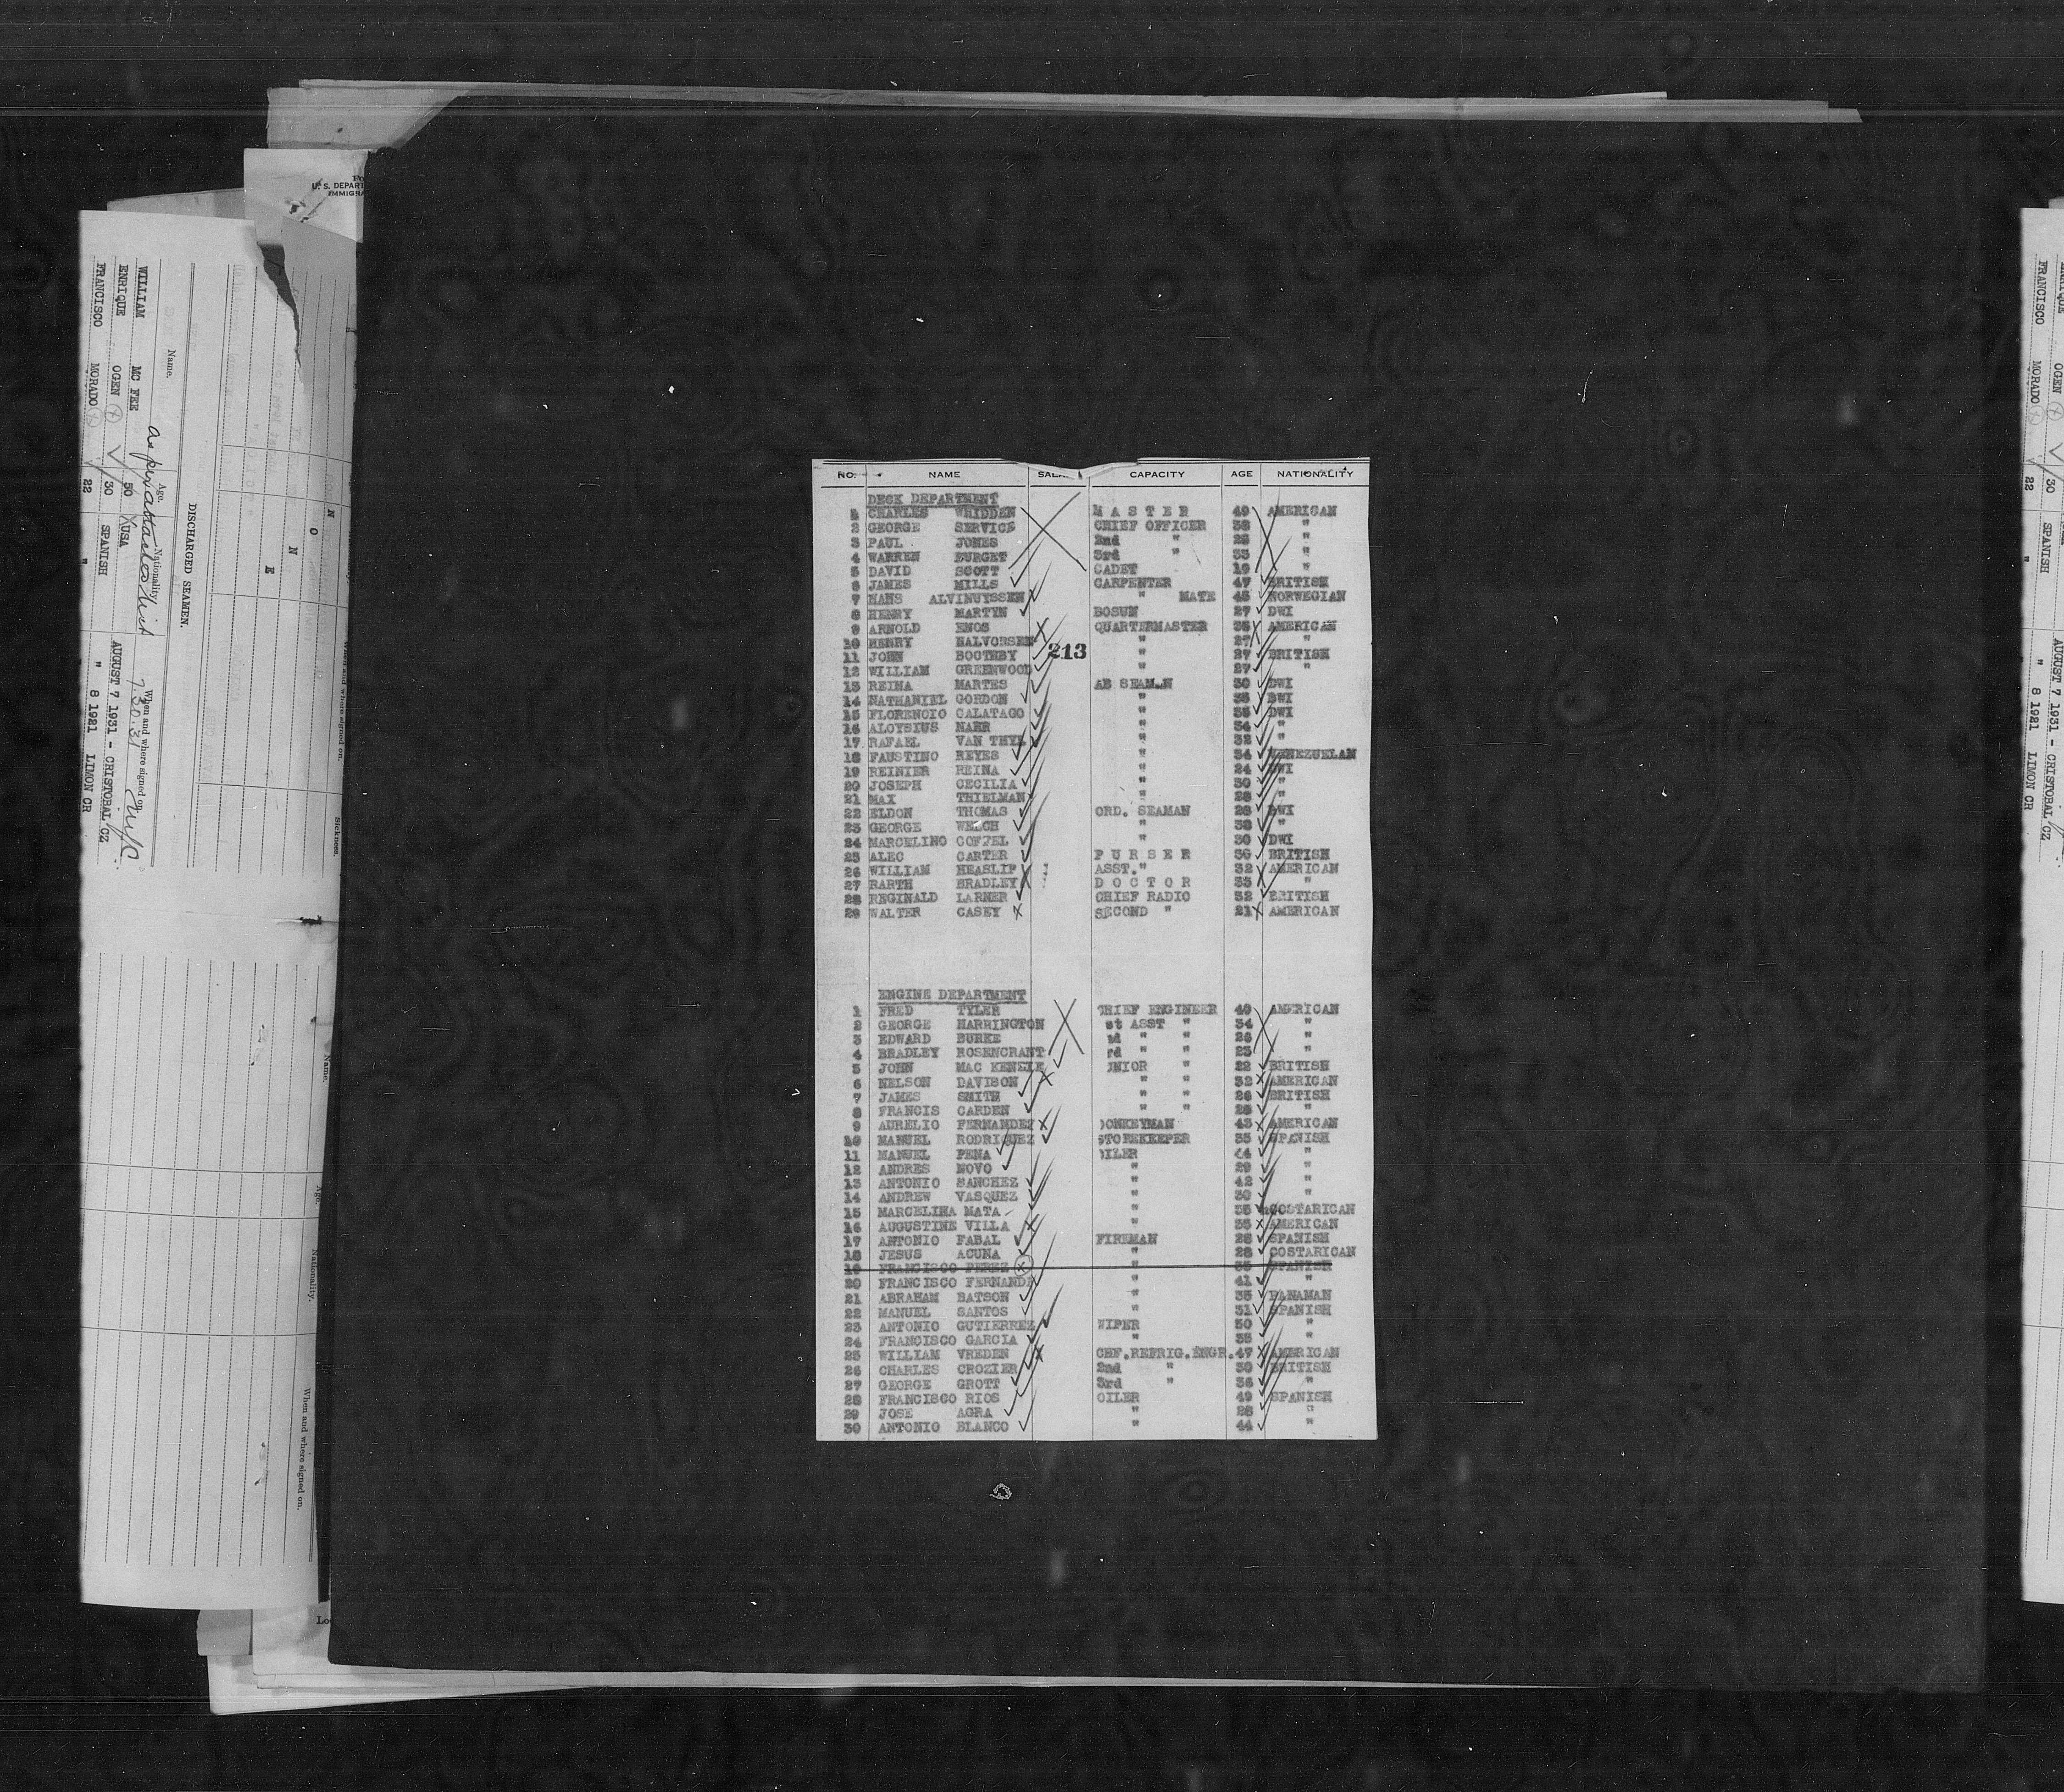 NO. NAME CAPACITY AGE NATIONALITY
DECK DEPARTMENT
1 CHARLES WHIDDEN M A S T E R 49 AMERICAN
2 GEORGE SERVICE CHIEF OFFICER 38 "
3 PAUL JONES 2nd " "
4 WARREN BURGET 3rd " 33 "
5 DAVID SCOTT CADET 19 "
6 JAMES MILLS CARPENTER 47 BRITISH
7 HANS ALVINUYSSEN " MATE 45 NORWEGIAN
8 HENRY MARTYN BOSUN 27 DWI
9 ARNOLD ENOS QUARTERMASTER AMERICAN
10 HENRY HALVORSEN " 27 "
11 JOHN BOOTHBY " 27 BRITISH
213
12 WILLIAM GREENWOOD " 27 "
13 REINA MARTES AB SEAMAN 30 DWI
14 NATHANIEL GORDON " BWI
15 FLORENCIO CALATAGO " DWI
16 ALOYSIUS NAHR " 34 "
17 RAFAEL VAN THYL " 32 "
18 FAUSTINO REYES " 34 VENEZUELAN
19 REINIER REINA " 24 DWI
20 JOSEPH CECILIA " 30 "
21 MAX THIELMAN " 28 "
22 ELDON THOMAS ORD. SEAMAN 28 BWI
23 GEORGE WELCH " 38 "
24 MARCELINO COFZEL " 30 DWI
25 ALEC CARTER P U R S E R 36 BRITISH
26 WILLIAM HEASLIP ASST." 32 AMERICAN
27 BARTH BRADLEY D O C T O R 33 "
28 REGINALD LARNER CHIEF RADIO 32 BRITISH
29 WALTER CASEY SECOND " 21 AMERICAN
ENGINE DEPARTMENT
1 FRED TYLER HIEF ENGINEER 40 AMERICAN
2 GEORGE HARRINGTON st ASST " 34 "
3 EDWARD BURKE nd " " 26 "
4 BRADLEY ROSENCRANT rd " " 25 "
5 JOHN MAC KENZIE UNIOR " 22 BRITISH
6 NELSON DAVISON " " 32 AMERICAN
7 JAMES SMITH " " 26 BRITISH
8 FRANCIS CARDEN " " 28 "
9 AURELIO FERNANDEZ DONKEYMAN 43 AMERICAN
10 MANUEL RODRIQUEZ STOREKEEPER 35 SPANISH
11 MANUEL PENA OILER 44 "
12 ANDRES NOVO " 29 "
13 ANTONIO SANCHEZ " 42 "
14 ANDREW VASQUEZ " 30 "
15 MARCELINA MATA " 35 COSTARICAN
16 AUGUSTINE VILLA " 35 AMERICAN
17 ANTONIO FABAL FIREMAN 28 SPANISH
18 JESUS ACUNA " 28 COSTARICAN
19 FRANCISCO PEREZ " 35 SPANISH
20 FRANCISCO FERNAND " 41 "
21 ABRAHAM BATSON " 35 PANAMAN
22 MANUEL SANTOS " 31 SPANISH
23 ANTONIO GUTIERREZ WIPER 50 "
24 FRANCISCO GARCIA " 35 "
25 WILLIAM VREDEN CHF.REFRIG.ENGR. 47 AMERICAN
26 CHARLES CROZIER 2nd " 30 BRITISH
27 GEORGE GROTT 3rd " 36 "
28 FRANCISCO RIOS OILER 49 SPANISH
29 JOSE AGRA " 28 "
30 ANTONIO BLANCO " 44 "
U. S. DEPART
IMMIGRA
DISCHARGED SEAMEN.
Name. Age. Nationality. When and where signed on
WILLIAM MC FEE 50 USA 7.30.31 NYC
ENRIQUE OGEN 30 SPANISH AUGUST 7 1931 - CRISTOBAL CZ
FRANCISCO MORADO 22 " " 8 1921 LIMON CR
N O N E
When and where signed on. Sickness.
Name. Age. Nationality. When and where signed on.
OGEN 30 SPANISH AUGUST 7 1931 - CRISTOBAL CZ
FRANCISCO MORADO 22 " " 8 1921 LIMON CR